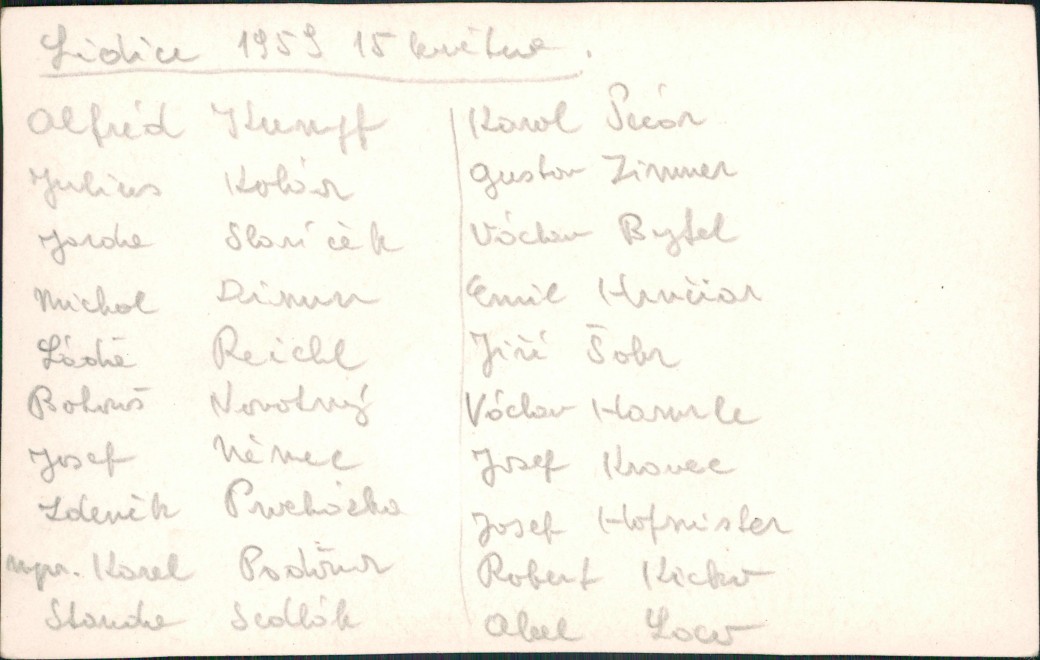 Lidice 1959 15 května.
Alfréd Kumpf
Julius Kolár
Jarda Slavíček
Michal
Láďa Reichl
Bohouš Novotný
Josef Němec
Zdeněk Procházka
npr. Karel
Standa Sedlák
Karol
Gustav Zimmer
Václav Bytel
Emil Hrnčiar
Jiří Šobr
Václav
Josef Kravec
Josef Hofmister
Robert
Abel